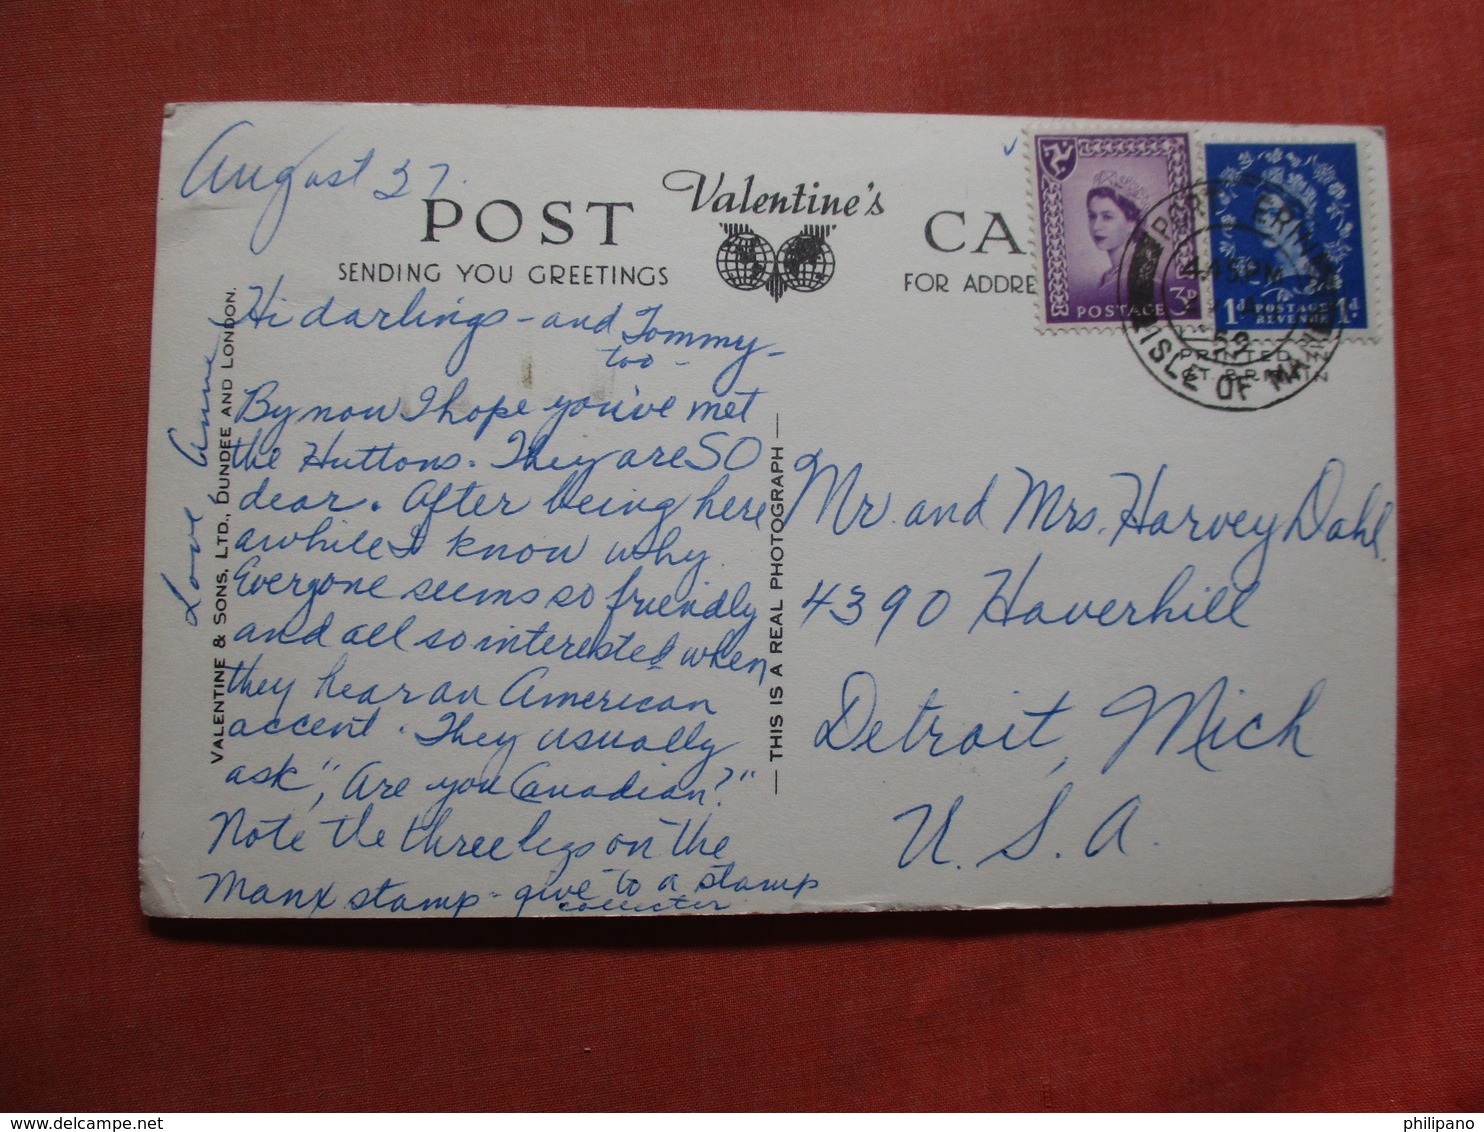 August 27.
POST
Valentine's
CA
SENDING YOU GREETINGS
FOR ADDRE
Hi darlings - and Tommy -
too -
By now I hope you've met
the Huttons. They are SO
dear. After being here
awhile I know why.
Everyone seems so friendly
and all so interested when
they hear an American
accent. They usually
ask, "Are you Canadian?"
Note the three legs on the
Manx stamp - give to a stamp
collector
Love Anne
VALENTINE & SONS, LTD., DUNDEE AND LONDON.
— THIS IS A REAL PHOTOGRAPH —
POSTAGE 3D
1d POSTAGE REVENUE 1d
4 45 PM
59
ISLE OF MAN
PRINTED IN
GT. BRITAIN
Mr. and Mrs. Harvey Dahl.
4390 Haverhill
Detroit, Mich
U. S. A.
delcampe.net
philipano